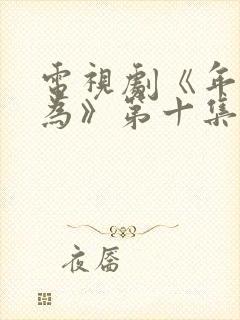 電視劇《年
為》第十集
夜靥